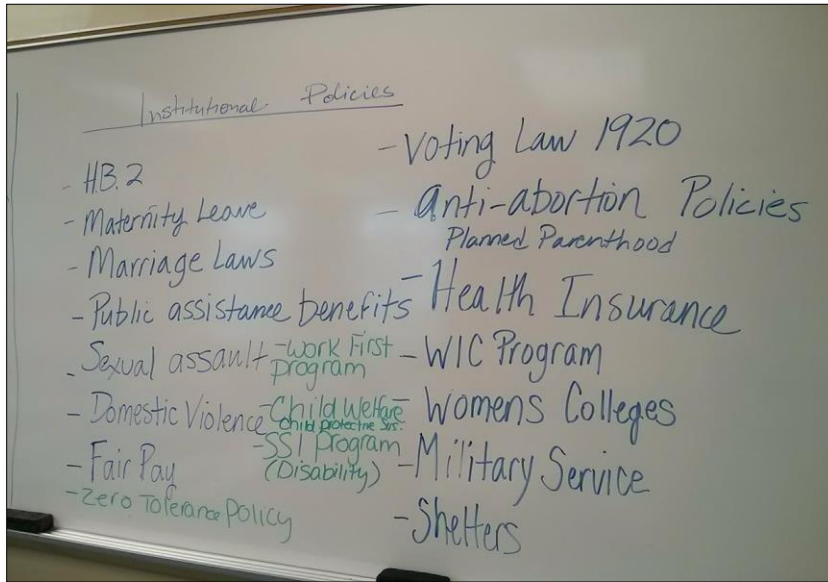 Institutional Policies
- H.B. 2
- Maternity Leave
- Marriage Laws
- Public assistance benefits
- Sexual assault
- Domestic Violence
- Fair Pay
- Zero Tolerance Policy
- Work First
program
- Child Welfare
Child protective Srvs.
- SSI program
(Disability)
- Voting Law 1920
- Anti-abortion Policies
Planned Parenthood
- Health Insurance
- WIC Program
- Womens Colleges
- Military Service
- Shelters